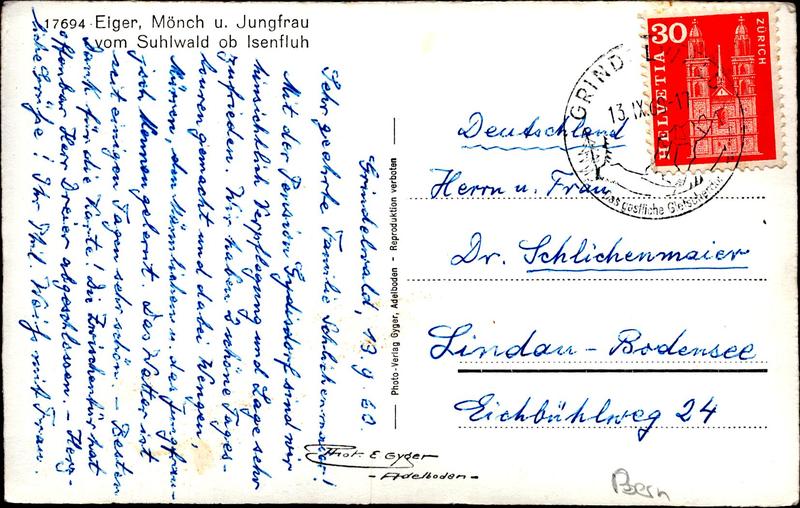 17694 Eiger, Mönch u. Jungfrau
vom Suhlwald ob Isenfluh
Grindelwald, 13.9.63.
Sehr geehrte Familie Schlichenmaier!
Mit der Pension Gydisdorf sind wir
hinsichtlich Verpflegung und Lage sehr
zufrieden. Wir haben schöne Tages-
touren gemacht und dabei Wengen,
Mürren, den Männlichen u. das Jungfrau-
joch kennengelernt. Das Wetter ist
seit einigen Tagen sehr schön. – Besten
Dank für die Karte! Die Zwischentür hat
offenbar Herr Dreier abgeschlossen. – Herz-
liche Grüße! Ihr Phil. Weiß mit Frau.
Photo-Verlag Gyger, Adelboden - Reproduktion verboten
Phot. E Gyger
- Adelboden -
HELVETIA 30
ZÜRICH
GRINDEL
13.IX.6
Das gastliche Gletscherdorf
Deutschland
Herrn u. Frau
Dr. Schlichenmaier
Lindau - Bodensee
Eichbühlweg 24
Bern